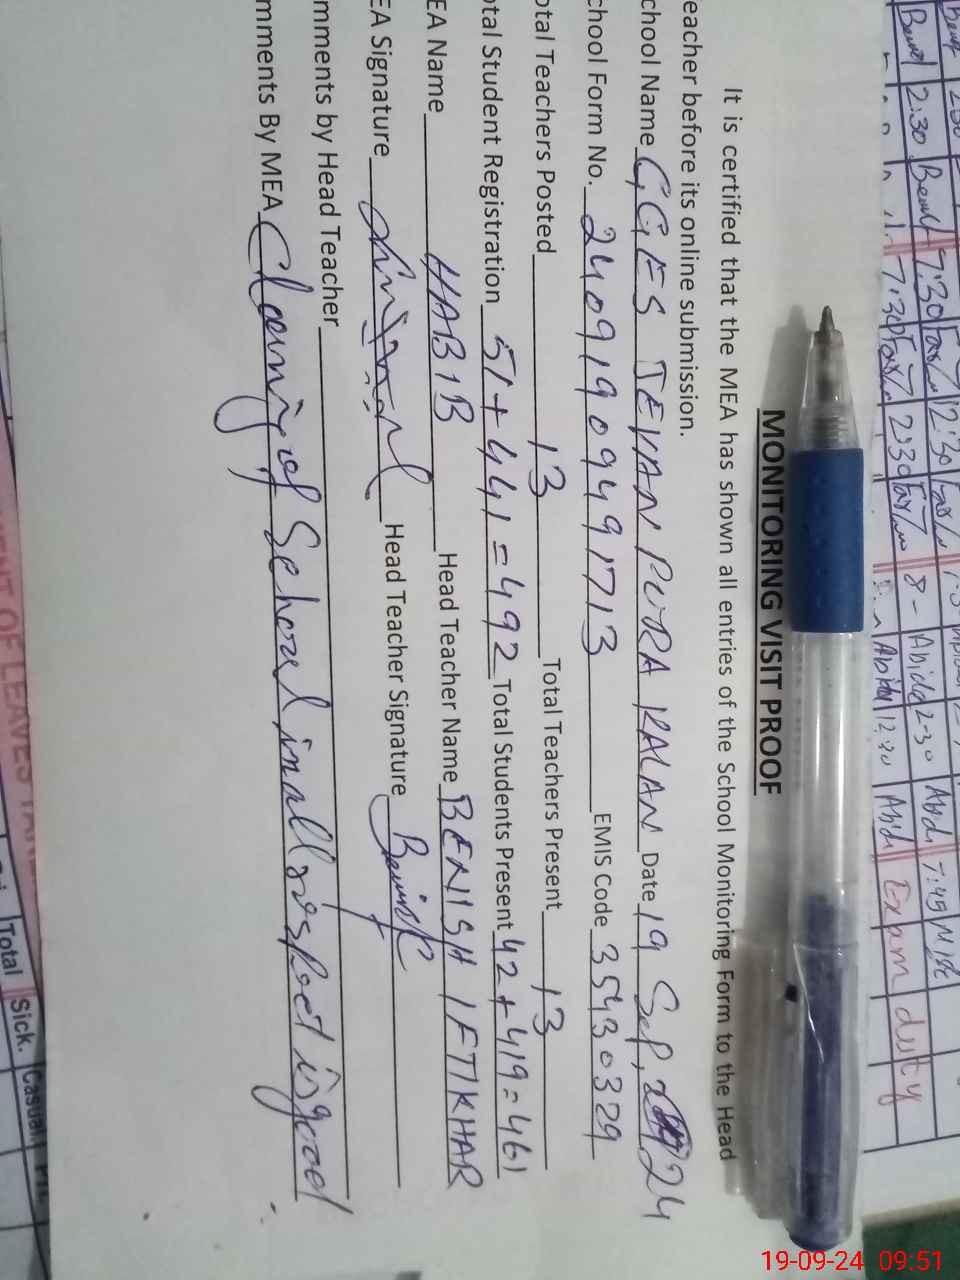 MONITORING VISIT PROOF
It is certified that the MEA has shown all entries of the School Monitoring Form to the Head
eacher before its online submission.
chool Name GGES JEVAN PURA KALAN Date 19 Sep, 24
chool Form No. 24091909491713 EMIS Code 35430329
otal Teachers Posted 13 Total Teachers Present 13
otal Student Registration 51+441=492 Total Students Present 42+419=461
EA Name HABIB Head Teacher Name BENISH IFTIKHAR
EA Signature Head Teacher Signature Benish
mments by Head Teacher
mments By MEA Cleaning of School in all respect is good
2:30 7:30 12:30
2:30 7:30 2:30 8- Abida 2-30 Abida 7:45
Abida 12,30 Abida Exam duty
OF LEAVES
Total Sick. Casual.
19-09-24 09:51